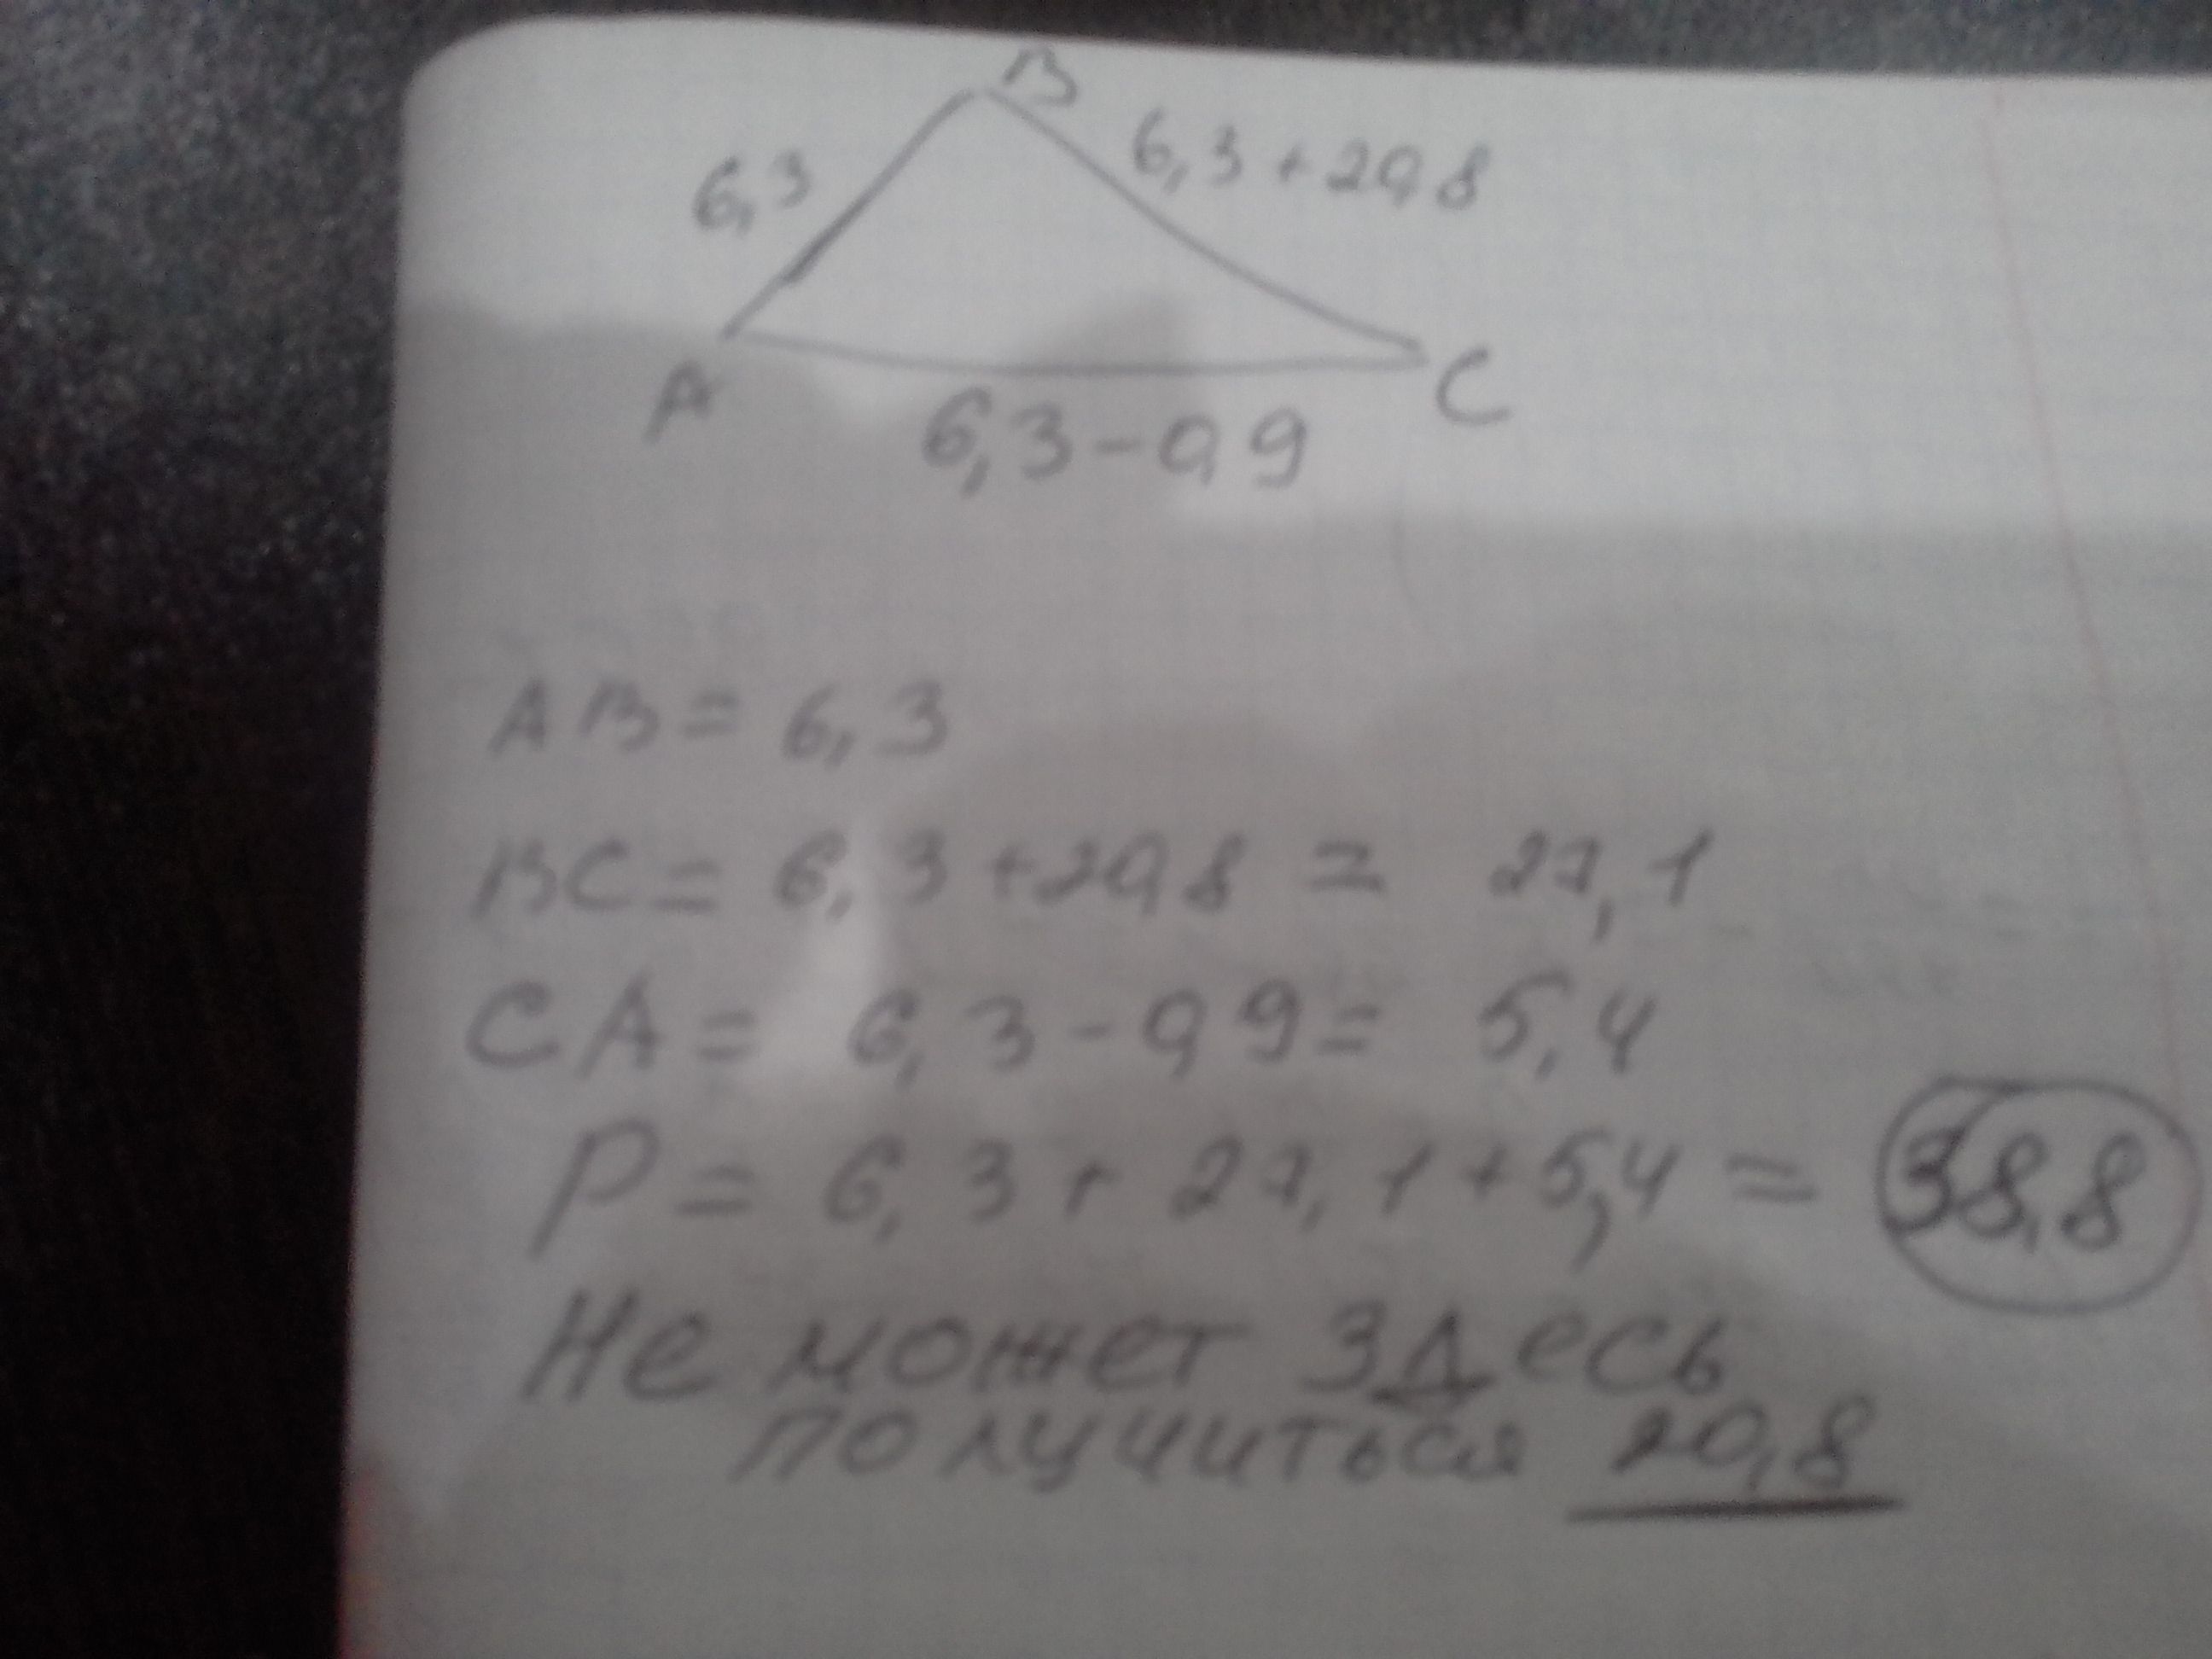 B
6,3
6,3+20,8
A
C
6,3-0,9
AB = 6,3
BC = 6,3+20,8 = 27,1
CA = 6,3-0,9 = 5,4
P = 6,3+27,1+5,4 = 38,8
Не может здесь
получиться 20,8